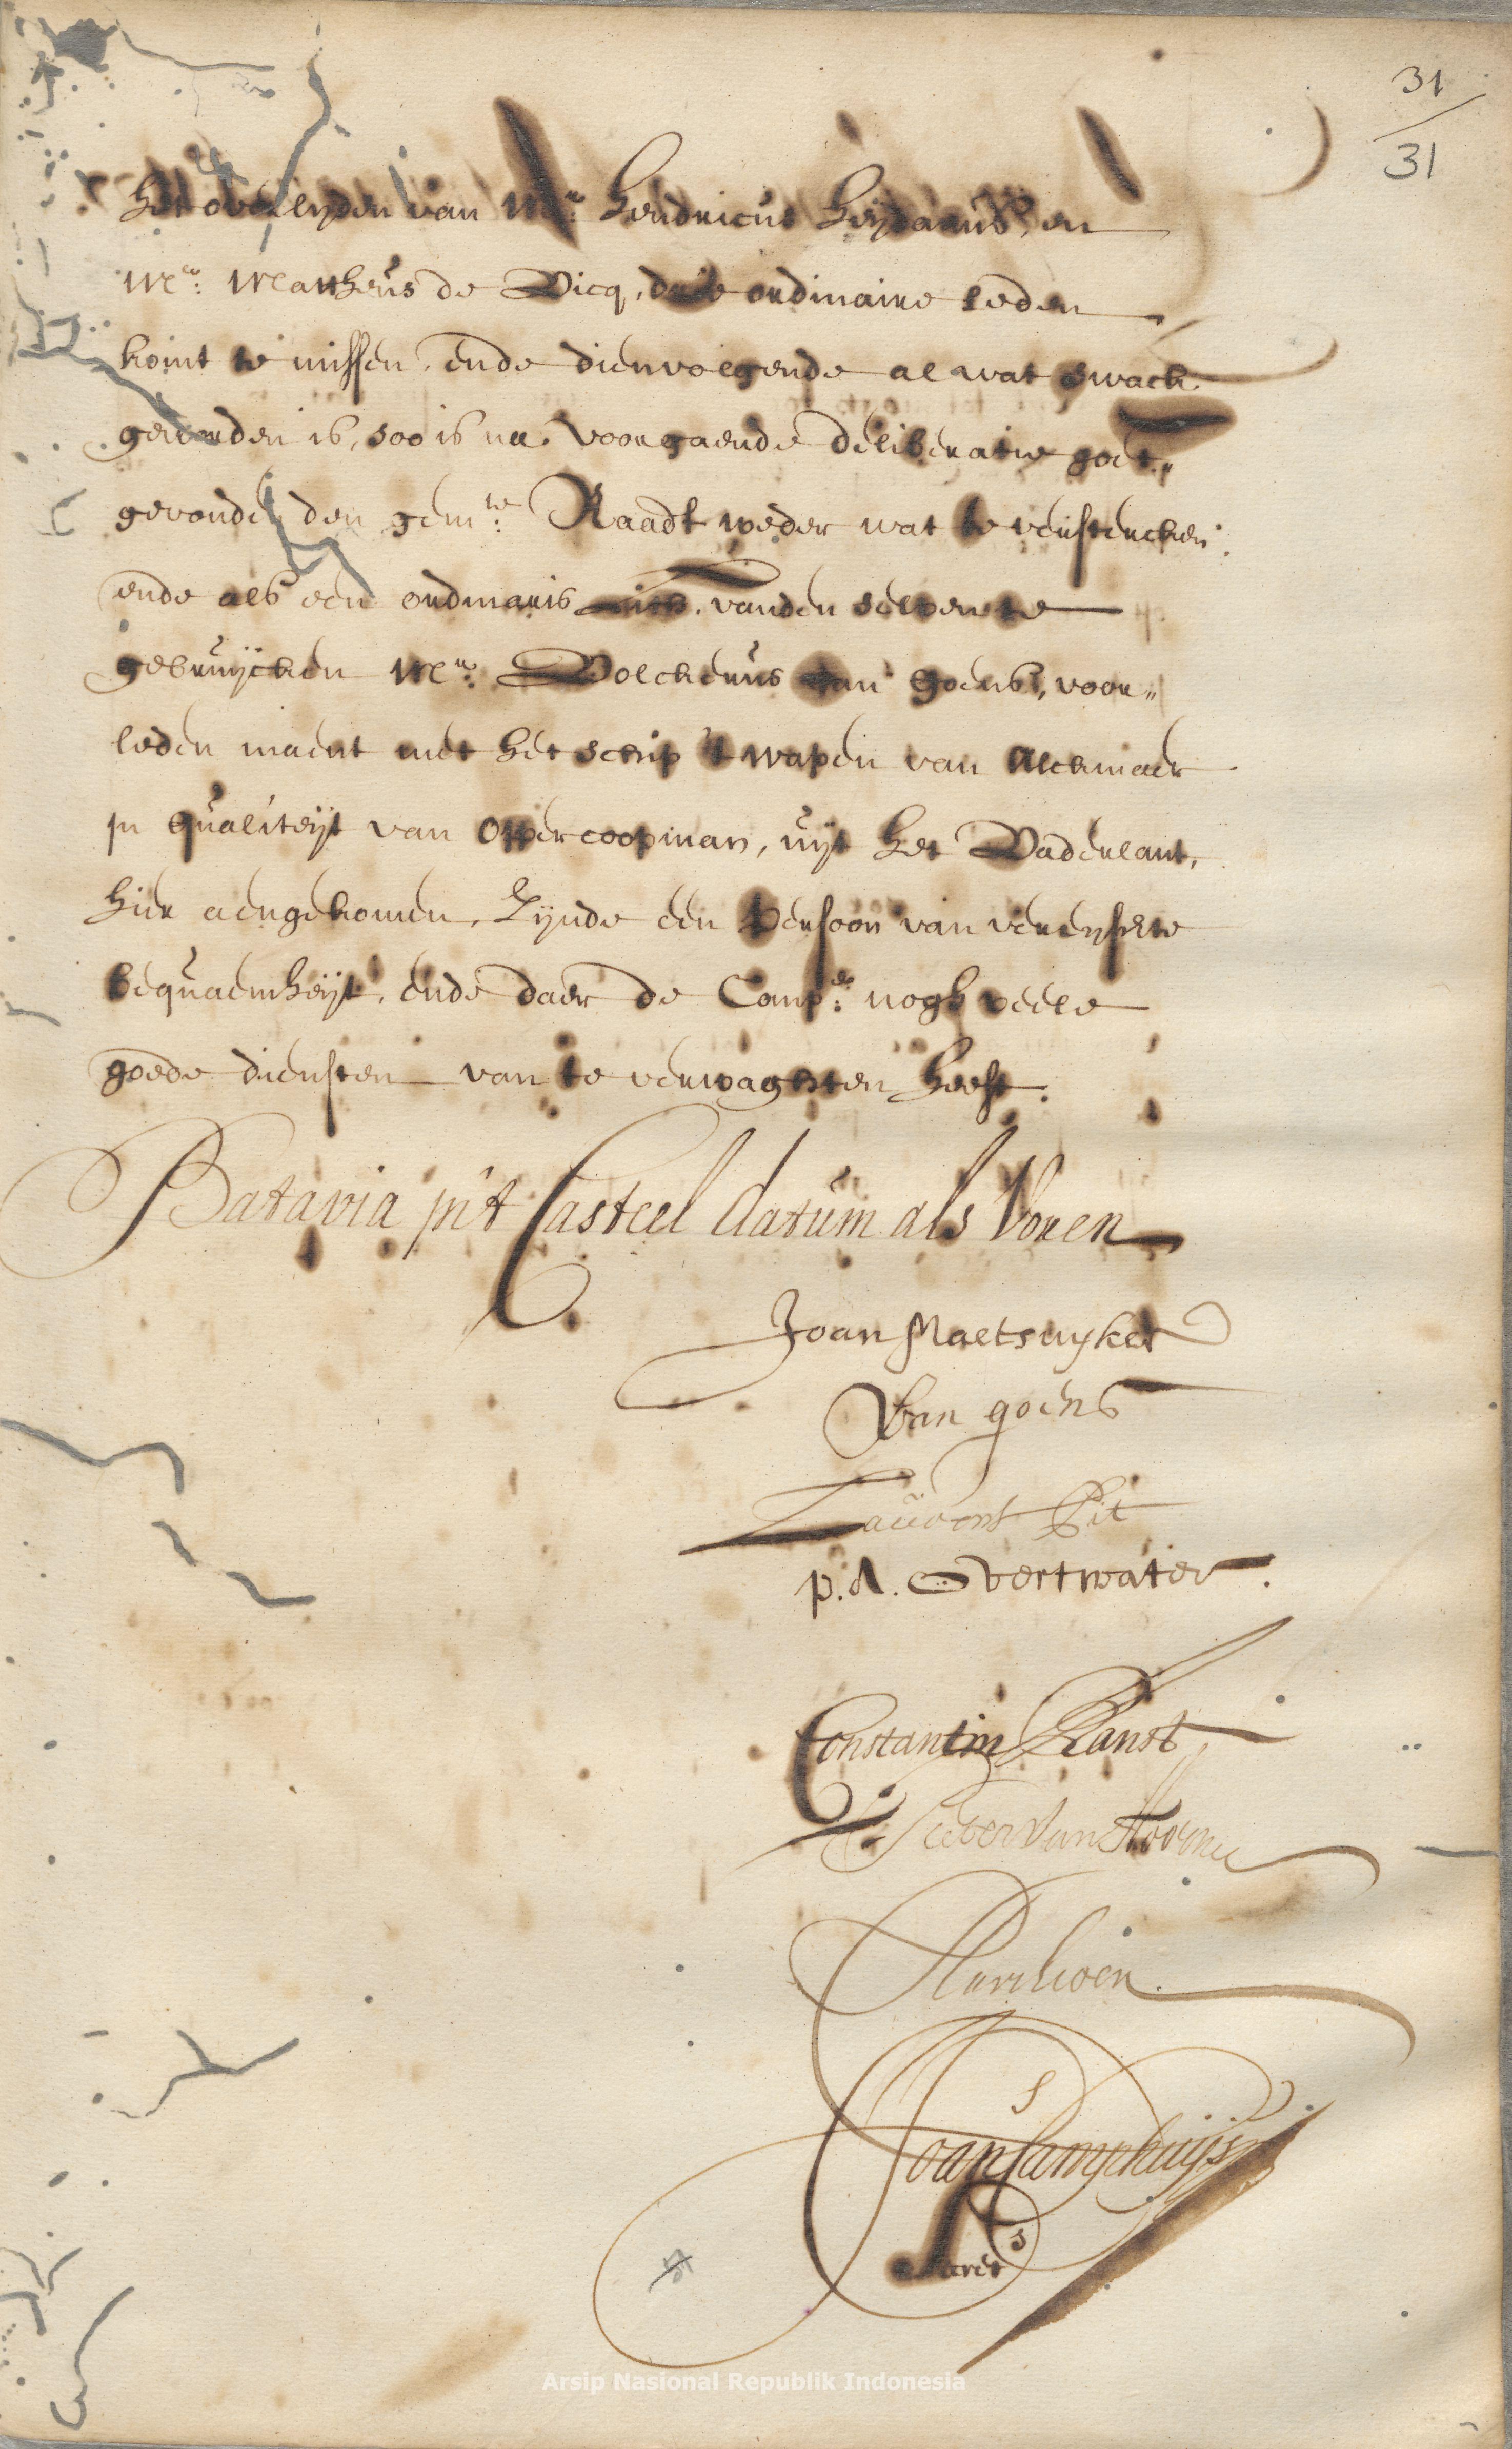 31
31
het overlyden van Mr: Hendricus Heydanus, en
Mr: Mattheus de Vicq, drie ordinaire leden
komt te missen, ende dienvolgende al wat swack
geworden is, soo is na voorgaende deliberatie goet„
gevonden den gemte: Raadt weder wat te verstercken
ende als een ordinaris Lith. vanden selven te
gebruÿcken Mr: Volckerus van Goens, voor„
leden maent met het schip 't wapen van Alckmaer
in qualiteÿt van Oppercoopman, uÿt het Vaderlant,
hier aengekomen, Zijnde een Persoon van vereijschte
bequaemheÿt, ende daer de Compe: nogh veele
goede diensten van te verwaghten heeft.
Batavia in't Casteel datum als Voren
Joan Maetsuyker
Van goens
Laurens Pit
p. A. Overtwater.
Constantin Ranst
Pieter Van Hoorn
Joan Camphuijs
Secrets
Arsip Nasional Republik Indonesia